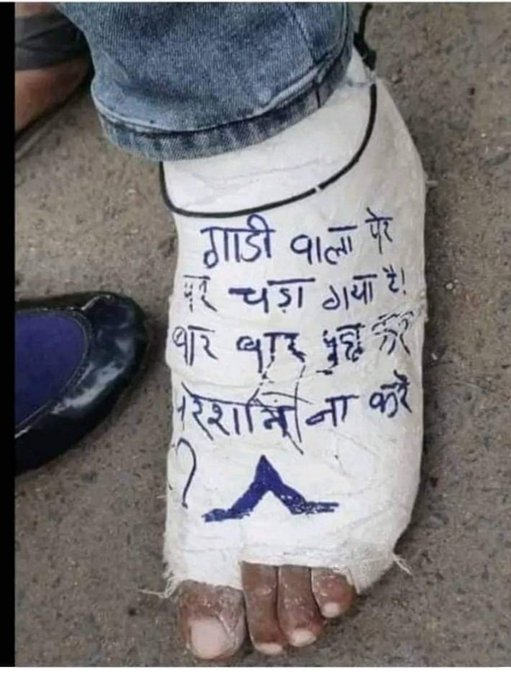 गाडी वाला पेर
पर चड़ा गया है!
बार बार पुछ कर
परेशानि ना करे